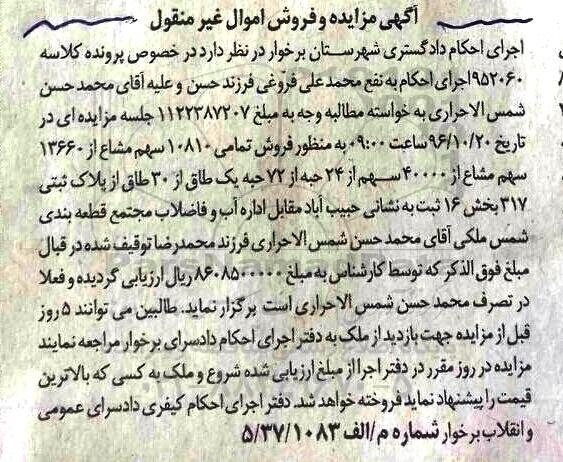 آگهی مزایده و فروش اموال غیر منقول
اجرای احکام دادگستری شهرستان برخوار در نظر دارد در خصوص پرونده کلاسه
۹۵۲۰۶۰ اجرای احکام به نفع محمد علی فروغی فرزند حسن و علیه آقای محمد حسن
شمس الاحراری به خواسته مطالبه وجه به مبلغ ۱۱۲۲۳۸۷۲۰۷ جلسه مزایده ای در
تاریخ ۹۶/۱۰/۲۰ ساعت ۰۹:۰۰ به منظور فروش تمامی ۱۰۸۱۰ سهم مشاع از ۱۳۶۶۰
سهم مشاع از ۴۰۰۰۰ سهم از ۲۴ حبه از ۷۲ حبه یک طاق از ۳۰ طاق از پلاک ثبتی
۳۱۷ بخش ۱۶ ثبت به نشانی حبیب آباد مقابل اداره آب و فاضلاب مجتمع قطعه بندی
شمس ملکی آقای محمد حسن شمس الاحراری فرزند محمدرضا توقیف شده در قبال
مبلغ فوق الذکر که توسط کارشناس به مبلغ ۸۶۰۸۵۰۰۰۰۰ ریال ارزیابی گردیده و فعلا
در تصرف محمد حسن شمس الاحراری است برگزار نماید. طالبین می توانند ۵ روز
قبل از مزایده جهت بازدید از ملک به دفتر اجرای احکام دادسرای برخوار مراجعه نمایند
مزایده در روز مقرر در دفتر اجرا از مبلغ ارزیابی شده شروع و ملک به کسی که بالاترین
قیمت را پیشنهاد نماید فروخته خواهد شد. دفتر اجرای احکام کیفری دادسرای عمومی
و انقلاب برخوار شماره م/الف ۵/۳۷/۱۰۸۳